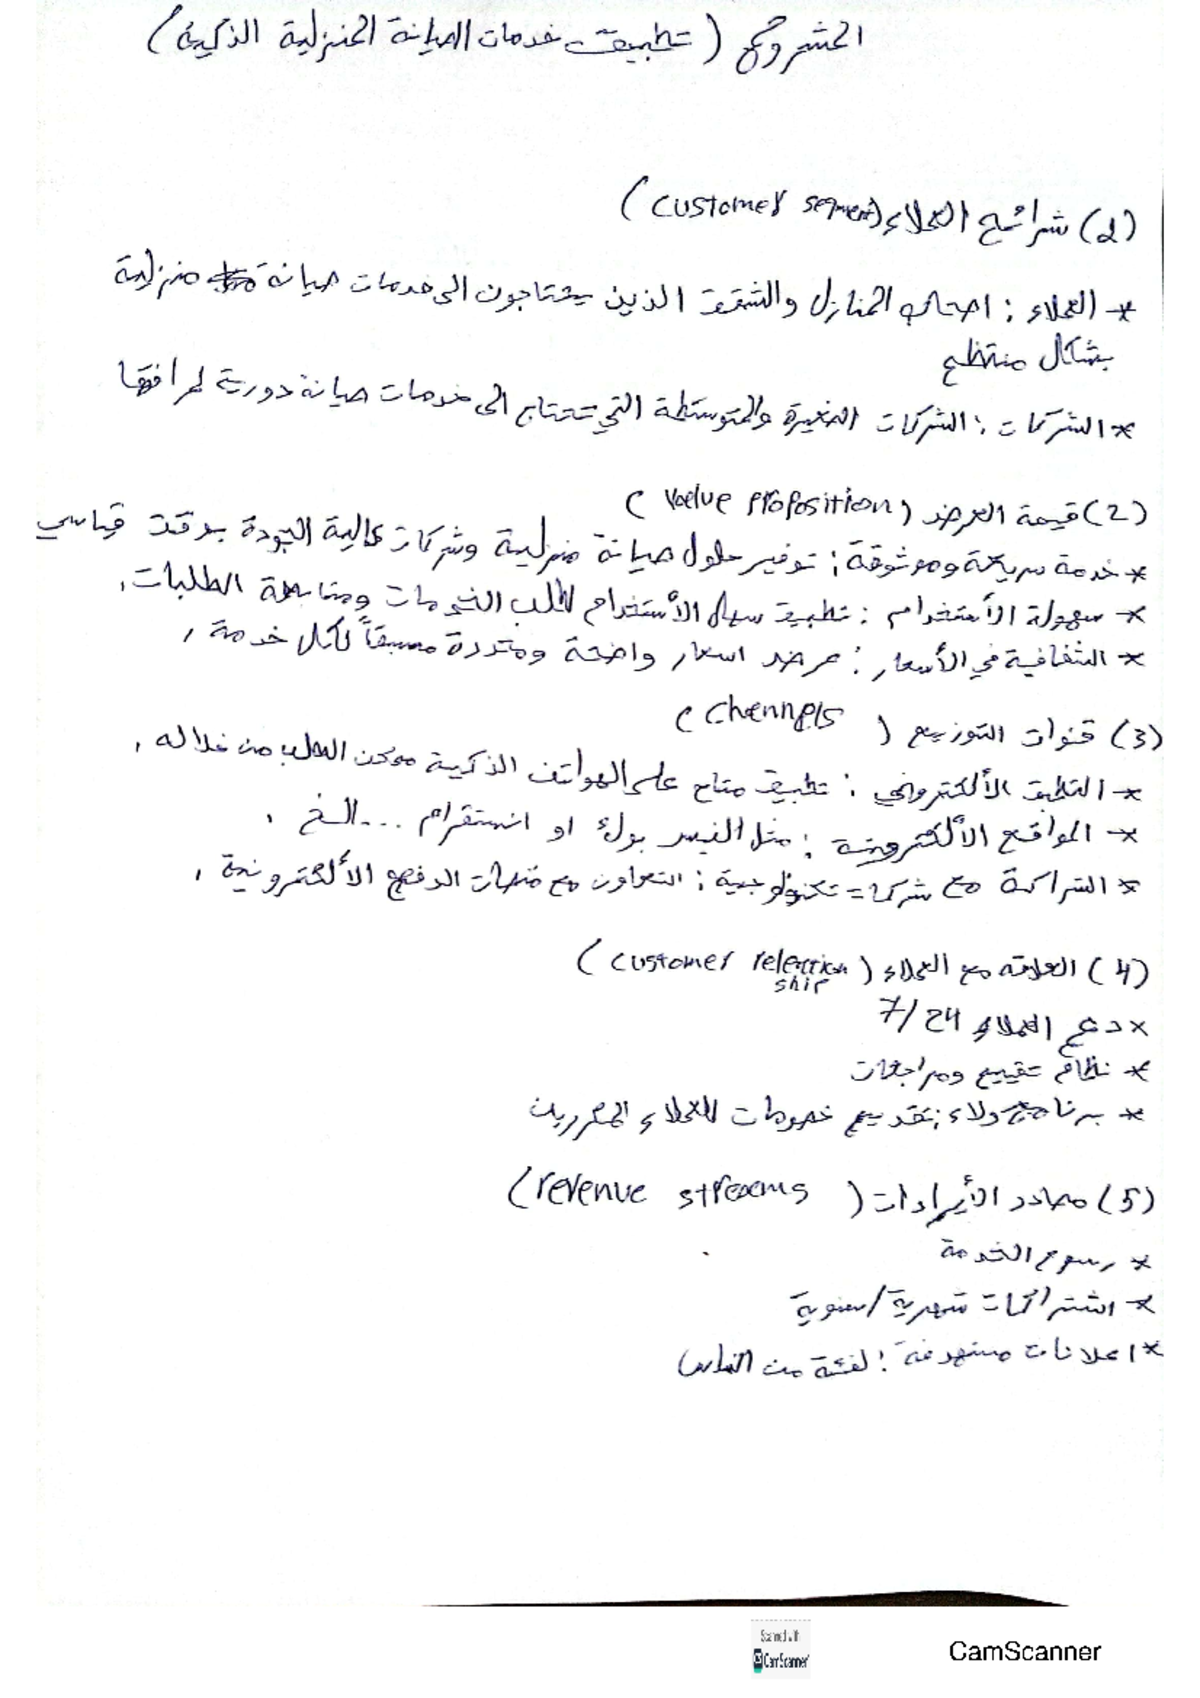 المشروع (تطبيق خدمات الصيانة المنزلية الذكية)
(1) شرائح العملاء (customer segment)
* العملاء : اصحاب المنازل والشقق الذين يحتاجون الى خدمات صيانة منزلية
بشكل منتظم
* الشركات : الشركات الصغيرة والمتوسطة التي تحتاج الى خدمات صيانة دورية لمرافقها
(2) قيمة العرض (value proposition)
* خدمة سريعة وموثوقة : توفير حلول صيانة منزلية وشركات عالية الجودة بوقت قياسي
* سهولة الأستخدام : تطبيق سهل الأستخدام لطلب الخدمات ومتابعة الطلبات.
* الشفافية في الأسعار : عرض اسعار واضحة ومحددة مسبقاً لكل خدمة.
(3) قنوات التوزيع (channels)
* التطبيق الألكتروني : تطبيق متاح على الهواتف الذكية ممكن الطلب من خلاله.
* المواقع الألكترونية : مثل الفيس بوك او انستقرام ... الخ.
* الشراكة مع شركات تكنولوجية : التعاون مع منصات الدفع الألكترونية.
(4) العلاقه مع العملاء (customer relation ship)
* دعم العملاء 7/24
* نظام تقييم ومراجعات
* برنامج ولاء : تقديم خصومات للعملاء المكررين
(5) مصادر الأيرادات (revenue streams)
* رسوم الخدمة
* اشتراكات شهرية / سنوية
* اعلانات مستهدفة : لفئة من الناس
Scanned with
CamScanner
CamScanner